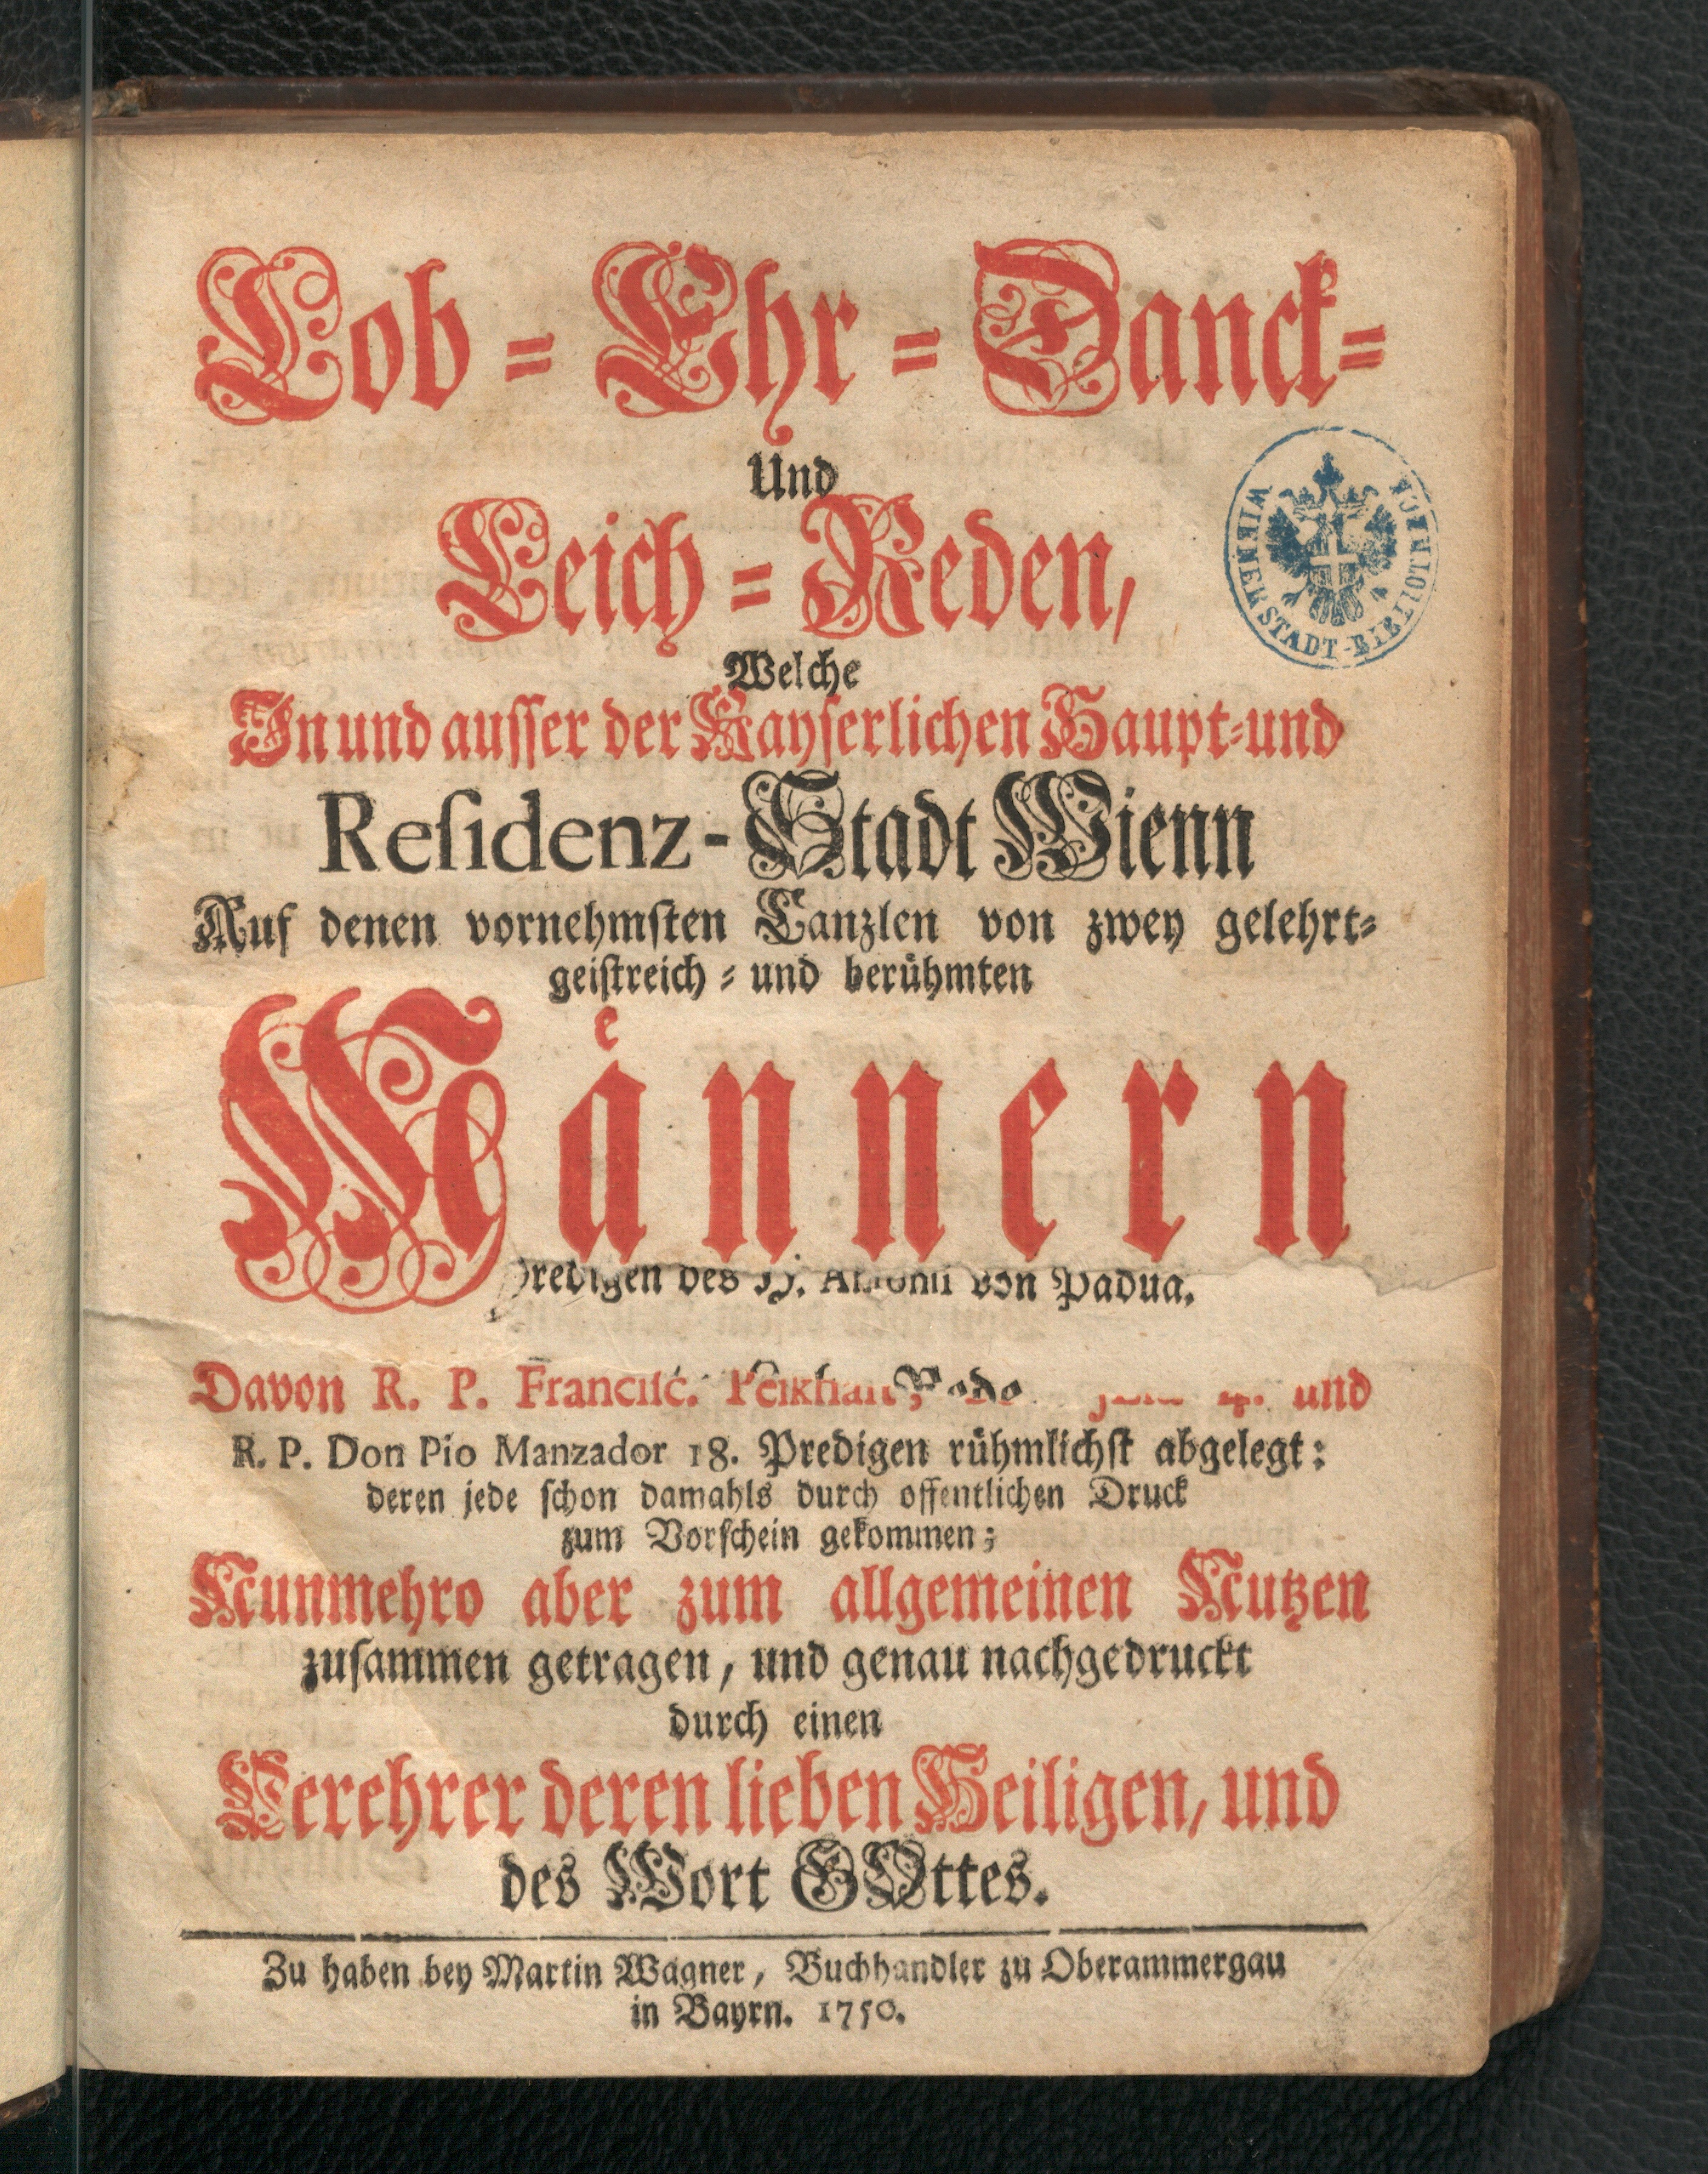 Lob = Ehr = Danck=
Und
Leich = Reden,
Welche
In und ausser der Kayserlichen Haupt=und
Reſidenz-Stadt Wienn
Auf denen vornehmſten Canzlen von zwey gelehrt=
geiſtreich = und berůhmten
Maͤnnern
des H. Antonii von Padua.
Davon R. P. Franciſc. Peikhart, und
R. P. Don Pio Manzador 18. Predigen růhmlichſt abgelegt:
deren jede ſchon damahls durch offentlichen Druck
zum Vorſchein gekommen;
Nunmehro aber zum allgemeinen Nutzen
zuſammen getragen, und genau nachgedruckt
durch einen
Verehrer deren lieben Heiligen, und
des Wort GOttes.
Zu haben bey Martin Wagner, Buchhandler zu Oberammergau
in Bayrn. 1750.
WIENER STADT-BIBLIOTHECK